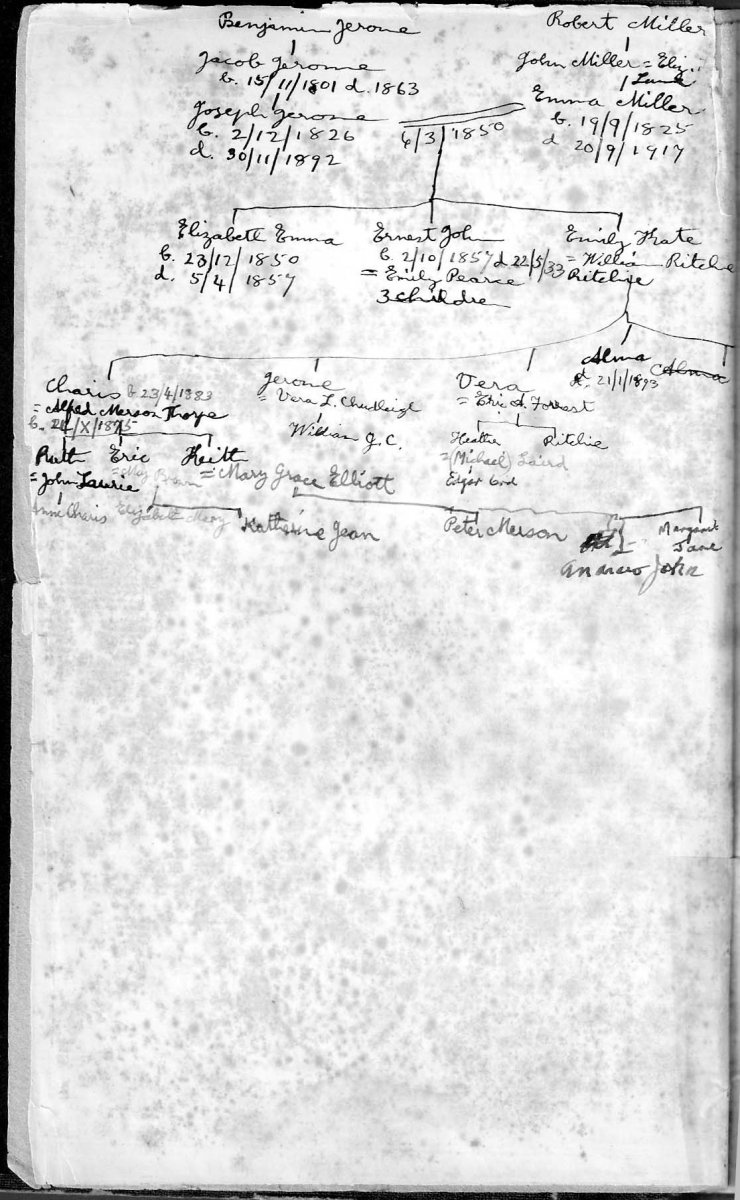 Benjamin Jerome
Robert Miller
Jacob Jerome
b. 15/11/1801 d. 1863
John Miller = Eliz.
Emma Miller
b. 19/9/1825
d 20/9/1917
Joseph Jerome
b. 2/12/1826
d. 30/11/1892
6/3/1850
Elizabeth Emma
b. 23/12/1850
d. 5/4/1857
Ernest John
b. 2/10/1857 d 22/5/33
= Emily Pearce
3 children
Emily Kate
= William Ritchie
Ritchie
Charis b 23/4/1883
= Alfred Merson Thorpe
b. /X/1875
Jerome
= Vera L. Chudleigh
William J. C.
Vera
= Eric A. Forrest
Alma
d. 21/1/1893
Alma
Heather
= (Michael) Laird
Edgar
Ritchie
Ruth
= John Laurie
Eric
= May Brown
Keith
= Mary Grace Elliott
Anne Charis
Elizabeth Mary
Katherine Jean
Peter Merson
Andrew John
Margaret
Jane